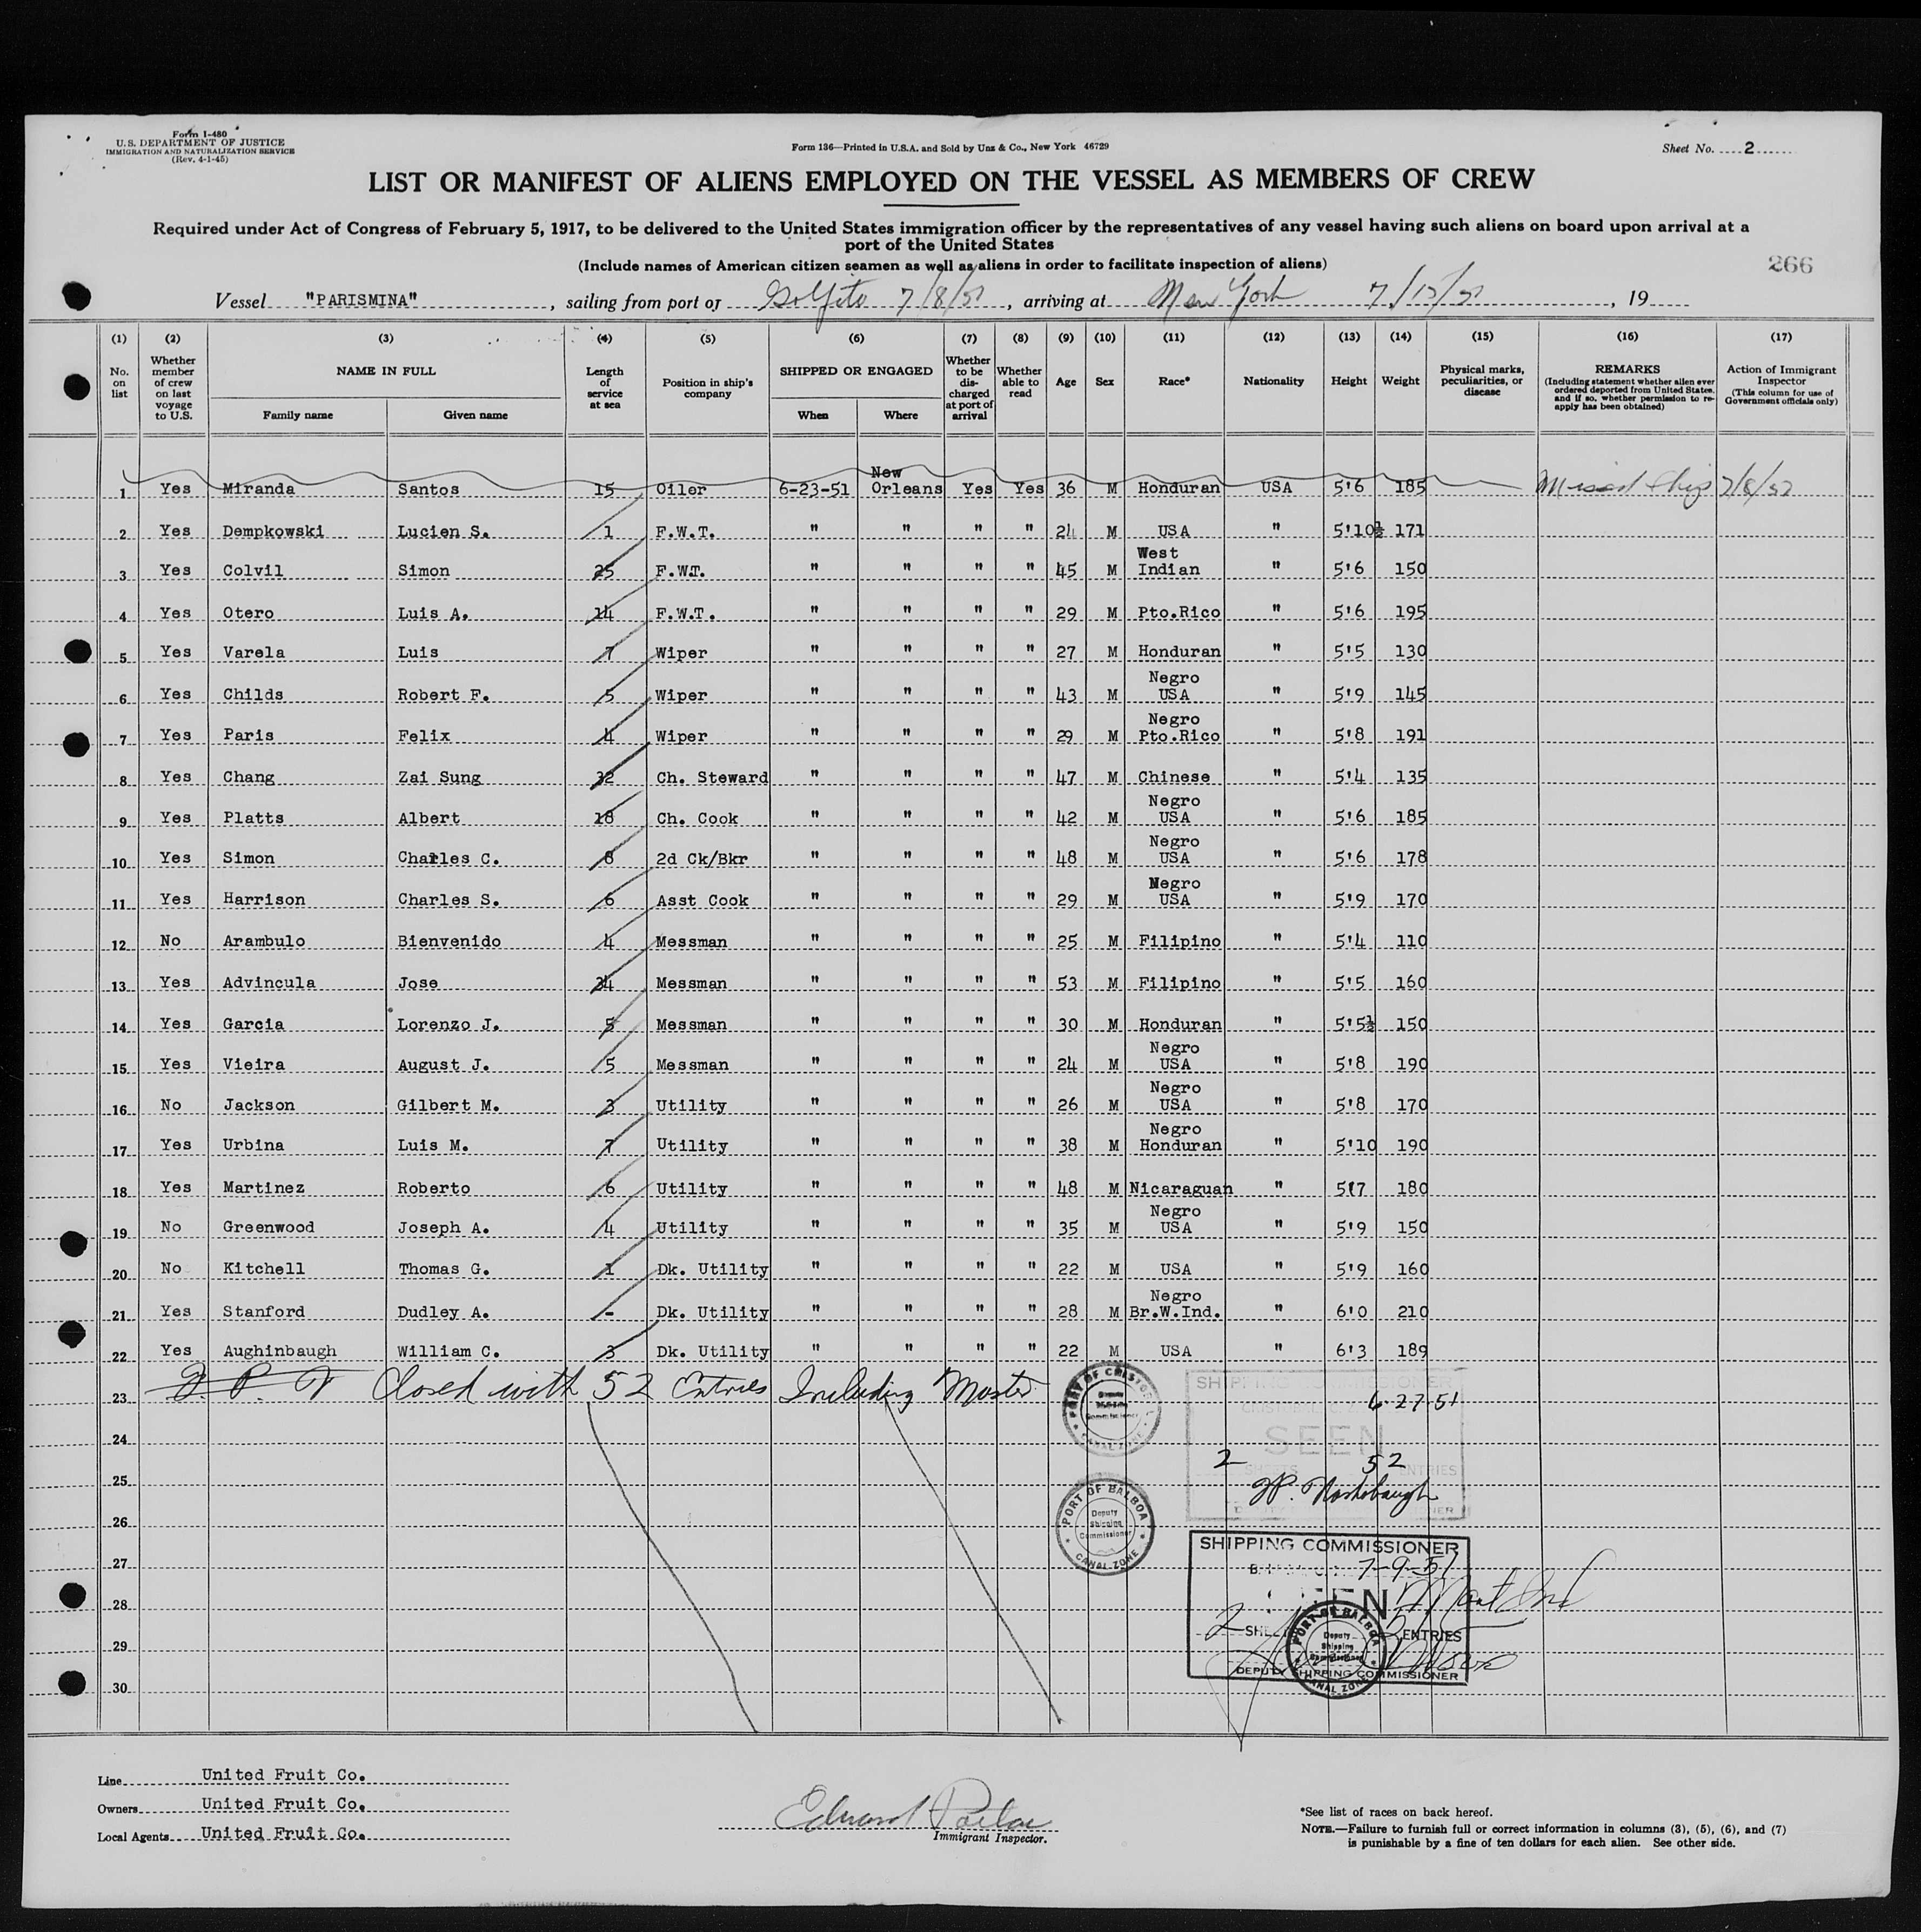 Form I-480
U.S. DEPARTMENT OF JUSTICE
IMMIGRATION AND NATURALIZATION SERVICE
(Rev. 4-1-45)
Form 136—Printed in U.S.A. and Sold by Unz & Co., New York 46729
Sheet No. 2
LIST OR MANIFEST OF ALIENS EMPLOYED ON THE VESSEL AS MEMBERS OF CREW
Required under Act of Congress of February 5, 1917, to be delivered to the United States immigration officer by the representatives of any vessel having such aliens on board upon arrival at a
port of the United States
(Include names of American citizen seamen as well as aliens in order to facilitate inspection of aliens)
266
Vessel "PARISMINA", sailing from port of Golfito 7/8/51, arriving at New York 7/15/51, 19
(1) (2) (3) (4) (5) (6) (7) (8) (9) (10) (11) (12) (13) (14) (15) (16) (17)
No. on list | Whether member of crew on last voyage to U.S. | NAME IN FULL Family name Given name | Length of service at sea | Position in ship's company | SHIPPED OR ENGAGED When Where | Whether to be discharged at port of arrival | Whether able to read | Age | Sex | Race* | Nationality | Height | Weight | Physical marks, peculiarities, or disease | REMARKS (Including statement whether alien ever ordered deported from United States, and if so, whether permission to reapply has been obtained) | Action of Immigrant Inspector (This column for use of Government officials only)
1 Yes Miranda Santos 15 Oiler 6-23-51 New Orleans Yes Yes 36 M Honduran USA 5'6 185 Missed Ship 7/8/51
2 Yes Dempkowski Lucien S. 1 F.W.T. " " " " 24 M USA " 5'10½ 171
3 Yes Colvil Simon 25 F.W.T. " " " " 45 M West Indian " 5'6 150
4 Yes Otero Luis A. 14 F.W.T. " " " " 29 M Pto.Rico " 5'6 195
5 Yes Varela Luis 7 Wiper " " " " 27 M Honduran " 5'5 130
6 Yes Childs Robert F. 5 Wiper " " " " 43 M Negro USA " 5'9 145
7 Yes Paris Felix 4 Wiper " " " " 29 M Negro Pto.Rico " 5'8 191
8 Yes Chang Zai Sung 32 Ch. Steward " " " " 47 M Chinese " 5'4 135
9 Yes Platts Albert 18 Ch. Cook " " " " 42 M Negro USA " 5'6 185
10 Yes Simon Charles C. 8 2d Ck/Bkr " " " " 48 M Negro USA " 5'6 178
11 Yes Harrison Charles S. 6 Asst Cook " " " " 29 M Negro USA " 5'9 170
12 No Arambulo Bienvenido 4 Messman " " " " 25 M Filipino " 5'4 110
13 Yes Advincula Jose 34 Messman " " " " 53 M Filipino " 5'5 160
14 Yes Garcia Lorenzo J. 5 Messman " " " " 30 M Honduran " 5'5½ 150
15 Yes Vieira August J. 5 Messman " " " " 24 M Negro USA " 5'8 190
16 No Jackson Gilbert M. 3 Utility " " " " 26 M Negro USA " 5'8 170
17 Yes Urbina Luis M. 7 Utility " " " " 38 M Negro Honduran " 5'10 190
18 Yes Martinez Roberto 6 Utility " " " " 48 M Nicaraguan " 5'7 180
19 No Greenwood Joseph A. 4 Utility " " " " 35 M Negro USA " 5'9 150
20 No Kitchell Thomas G. 1 Dk. Utility " " " " 22 M USA " 5'9 160
21 Yes Stanford Dudley A. - Dk. Utility " " " " 28 M Negro Br.W.Ind. " 6'0 210
22 Yes Aughinbaugh William C. 3 Dk. Utility " " " " 22 M USA " 6'3 189
23 Closed with 52 Entries Including Master
24
25
26
27
28
29
30
PORT OF CRISTOBAL CANAL ZONE
SHIPPING COMMISSIONER
CRISTOBAL, C. Z.
6-27-51
SEEN
2 SHEETS 52 ENTRIES
DEPUTY SHIPPING COMMISSIONER
PORT OF BALBOA
Deputy
Shipping
Commissioner
CANAL ZONE
SHIPPING COMMISSIONER
7-9-51
SEEN
2 SHEETS ENTRIES
DEPUTY SHIPPING COMMISSIONER
PORT OF BALBOA
Deputy
Shipping
Commissioner
CANAL ZONE
Line United Fruit Co.
Owners United Fruit Co.
Local Agents United Fruit Co.
Edward
Immigrant Inspector.
*See list of races on back hereof.
NOTE.—Failure to furnish full or correct information in columns (3), (5), (6), and (7)
is punishable by a fine of ten dollars for each alien. See other side.